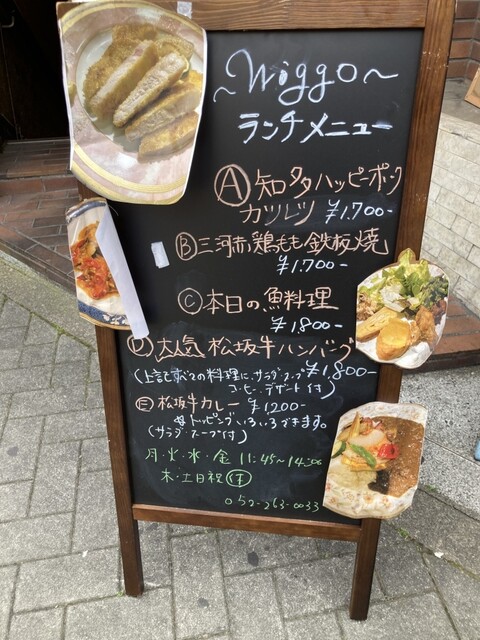 ~Wiggo~
ランチメニュー
Ⓐ知多ハッピーポーク
カツレツ ¥1.700-
Ⓑ三河赤鶏もも鉄板焼
¥1.700-
Ⓒ本日の魚料理
¥1.800-
Ⓓ大人気 松坂牛ハンバーグ
¥1.800-
(上記すべての料理に、サラダ・スープ
コーヒー、デザート付)
Ⓔ松坂牛カレー ¥1200-
トッピングいろいろできます。
(サラダ・スープ付)
月・火・水・金 11:45~14:00
木・土日祝 休
052-263-0033